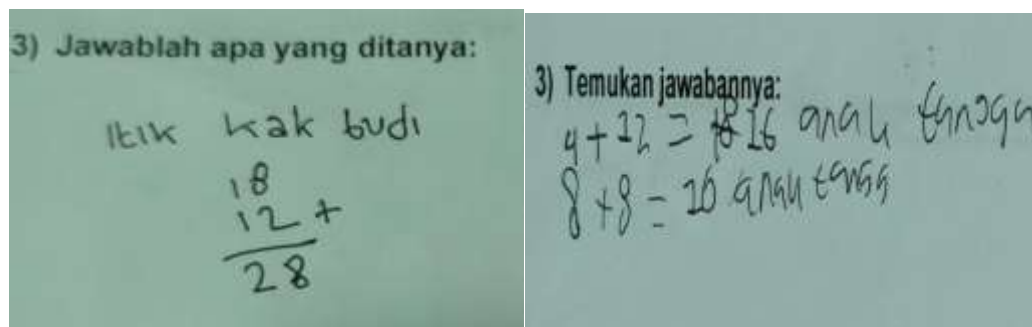 3) Jawablah apa yang ditanya:
itik kak budi
18
12 +
28
3) Temukan jawabannya:
4 + 12 = 16 anak tangga
8 + 8 = 16 anak tangga